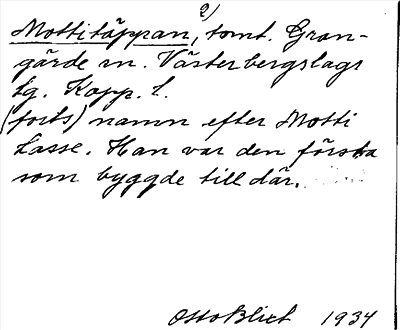 2)
Mottitäppan, tomt. Gran-
gärde sn. Västerbergslags
tg. Kopp. l.
(forts) namn efter Motti
Lasse. Han var den första
som byggde till där.
Otto Blixt 1934